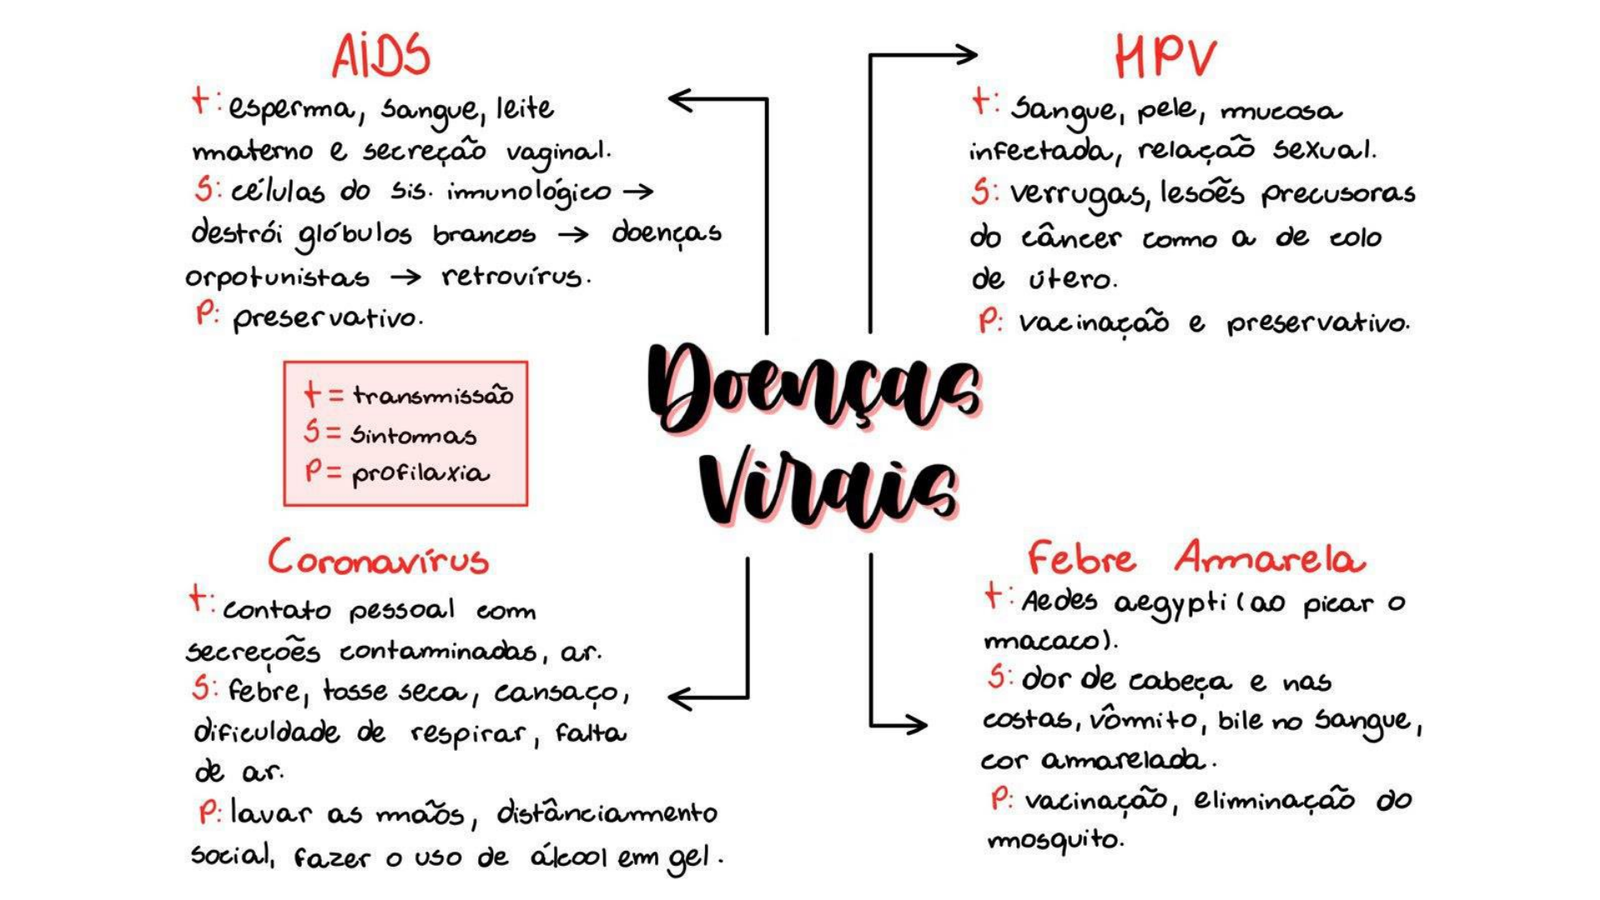 AIDS
t: esperma, sangue, leite
materno e secreção vaginal.
S: células do sis. imunológico →
destrói glóbulos brancos → doenças
orpotunistas → retrovírus.
P: preservativo.
HPV
t: Sangue, pele, mucosa
infectada, relação sexual.
S: verrugas, lesões precusoras
do câncer como a de colo
de útero.
P: vacinação e preservativo.
t = transmissão
S = Sintomas
P = profilaxia
Doenças
Virais
Coronavírus
t: contato pessoal com
secreções contaminadas, ar.
S: febre, tosse seca, cansaço,
dificuldade de respirar, falta
de ar.
P: lavar as mãos, distânciamento
social, fazer o uso de álcool em gel.
Febre Amarela
t: Aedes aegypti (ao picar o
macaco).
S: dor de cabeça e nas
costas, vômito, bile no sangue,
cor amarelada.
P: vacinação, eliminação do
mosquito.